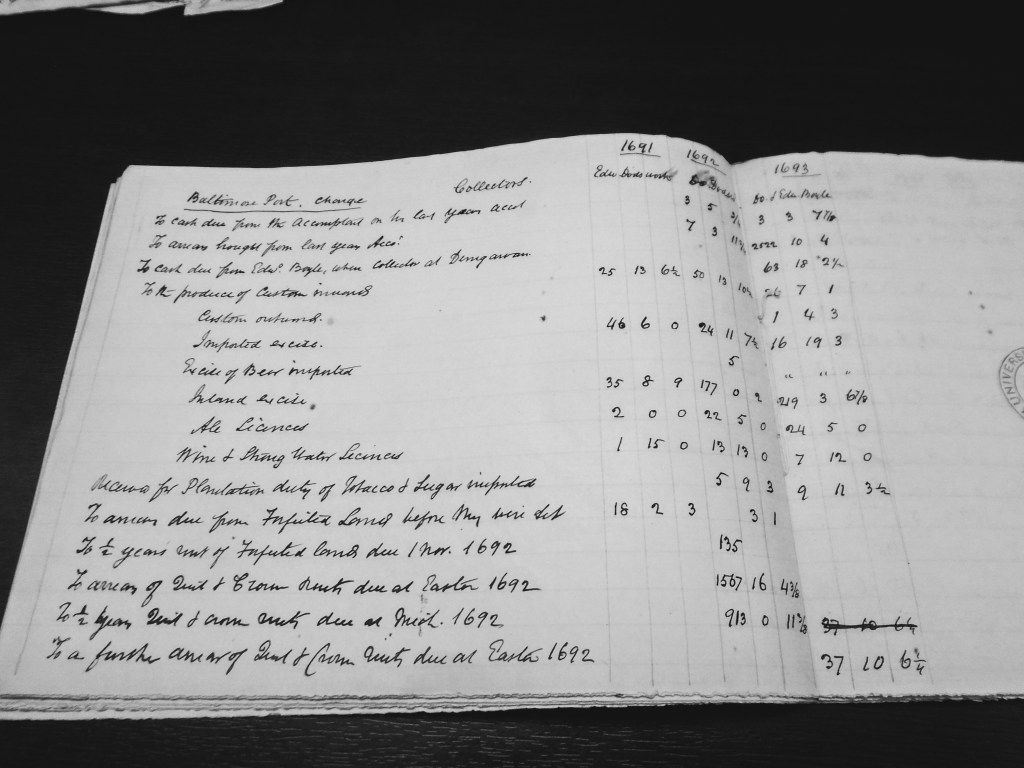 1691 1692 1693
Collectors. Edw Dodsworth Do. & Edw Boyle
Baltimore Port. charge
To cash due from the Accomptant on his last years acct 3 5 3/4 3 3 7 7/8
To arrears brought from last years Acct. 7 3 11 2522 10 4
To cash due from Edwd. Boyle, when Collector at Dungarvan 63 18 2 1/2
To the produce of Custom inwards 25 13 6 1/2 50 13 10 26 7 1
Custom outwards. 1 4 3
Imported excise. 46 6 0 24 11 7 1/2 16 19 3
Excise of Beer imported 5 " " "
Inland excise 35 8 9 177 0 2 219 3 6 7/8
Ale Licences 2 0 0 22 5 0 24 5 0
Wine & Strong Water Licences 1 15 0 13 13 0 7 12 0
Received for Plandation duty of Tobacco & Sugar imported 5 9 3 9 11 3 1/2
To arrears due from Forfeited Lands before they were set 18 2 3 3 1
To 1/2 years rent of Forfeited lands due 1 Nov. 1692 135
To arrears of Quit & Crown Rents due at Easter 1692 1567 16 4 3/8
To 1/2 years Quit & crown rents due at Mich. 1692 913 0 11 3/8 37 10 6 1/4
To a further arrear of Quit & Crown rents due at Easter 1692 37 10 6 1/4
UNIVERSI